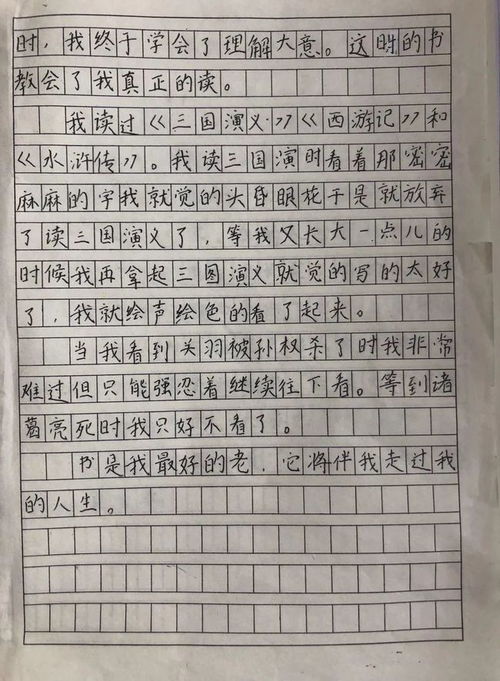 时，我终于学会了理解大意。这时的书
教会了我真正的读。
我读过《三国演义》《西游记》和
《水浒传》。我读三国演时看着那密密
麻麻的字我就觉的头昏眼花于是就放弃
了读三国演义了，等我又长大一点儿的
时候我再拿起三国演义就觉的写的太好
了，我就绘声绘色的看了起来。
当我看到关羽被孙权杀了时我非常
难过但只能强忍着继续往下看。等到诸
葛亮死时我只好不看了。
书是我最好的老，它将伴我走过我
的人生。